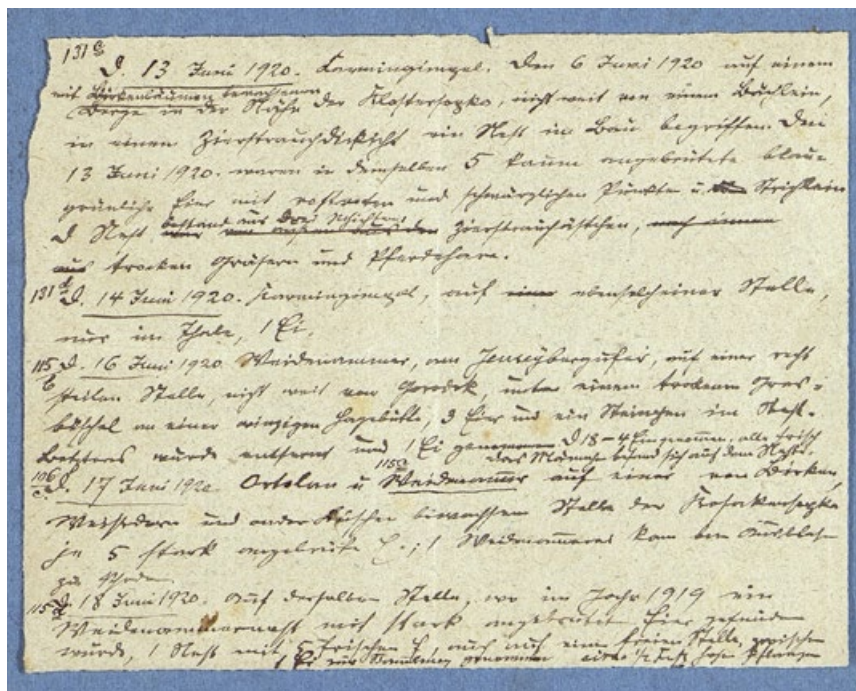 131 a
D. 13 Juni 1920. Karmingimpel. Den 6 Juni 1920 auf einem
mit Birkenbäumen bewachsenen
Berge in der Nähe der Klostersopko, nicht weit von einem Bächlein,
in einem Zierstrauchdickicht ein Nest im Bau begriffen. Den
13 Juni 1920. waren in demselben 5 kaum angebrütete blau-
grünliche Eier mit rostroten und schwärzlichen Punkten u. Strichlein
D Nest bestand aus drei Schichten: Zierstrauchästchen,
trocken Gräsern und Pferdehare.
131 D. 14 Juni 1920. Karmingimpel, auf ebensolcheiner Stelle,
nur im Thale, 1 Ei.
115 b D. 16 Juni 1920 Weidenammer, am Jenseybergufer, auf einer recht
steilen Stelle, nicht weit von Gorodok, unter einem trockenen Gras-
büschel an einer winzigen Hagebutte, 3 Eier und ein Steinchen im Nest.
Letzteres wurde entfernt und 1 Ei genommen D 18 – 4 Ei genommen, alle frisch
das Mädchen befand sich auf dem Neste.
106 c D. 17 Juni 1920. Ortolan u 115 c Weidenammer auf einer von Birken,
und ander bewachsenen Stelle der
je 5 stark angebrütete E.; 1 Weidenammerei kam beim Ausblasen
zu Schaden
115 d D. 18 Juni 1920. Auf derselben Stelle, wo im Jahr 1919 ein
Weidenammernest mit stark angebrüteten Eier gefunden
wurde, 1 Nest mit 5 frischen E, auch auf einer freien Stelle, zwischen
1 Ei zur Sammlung genommen hohen Pflanzen